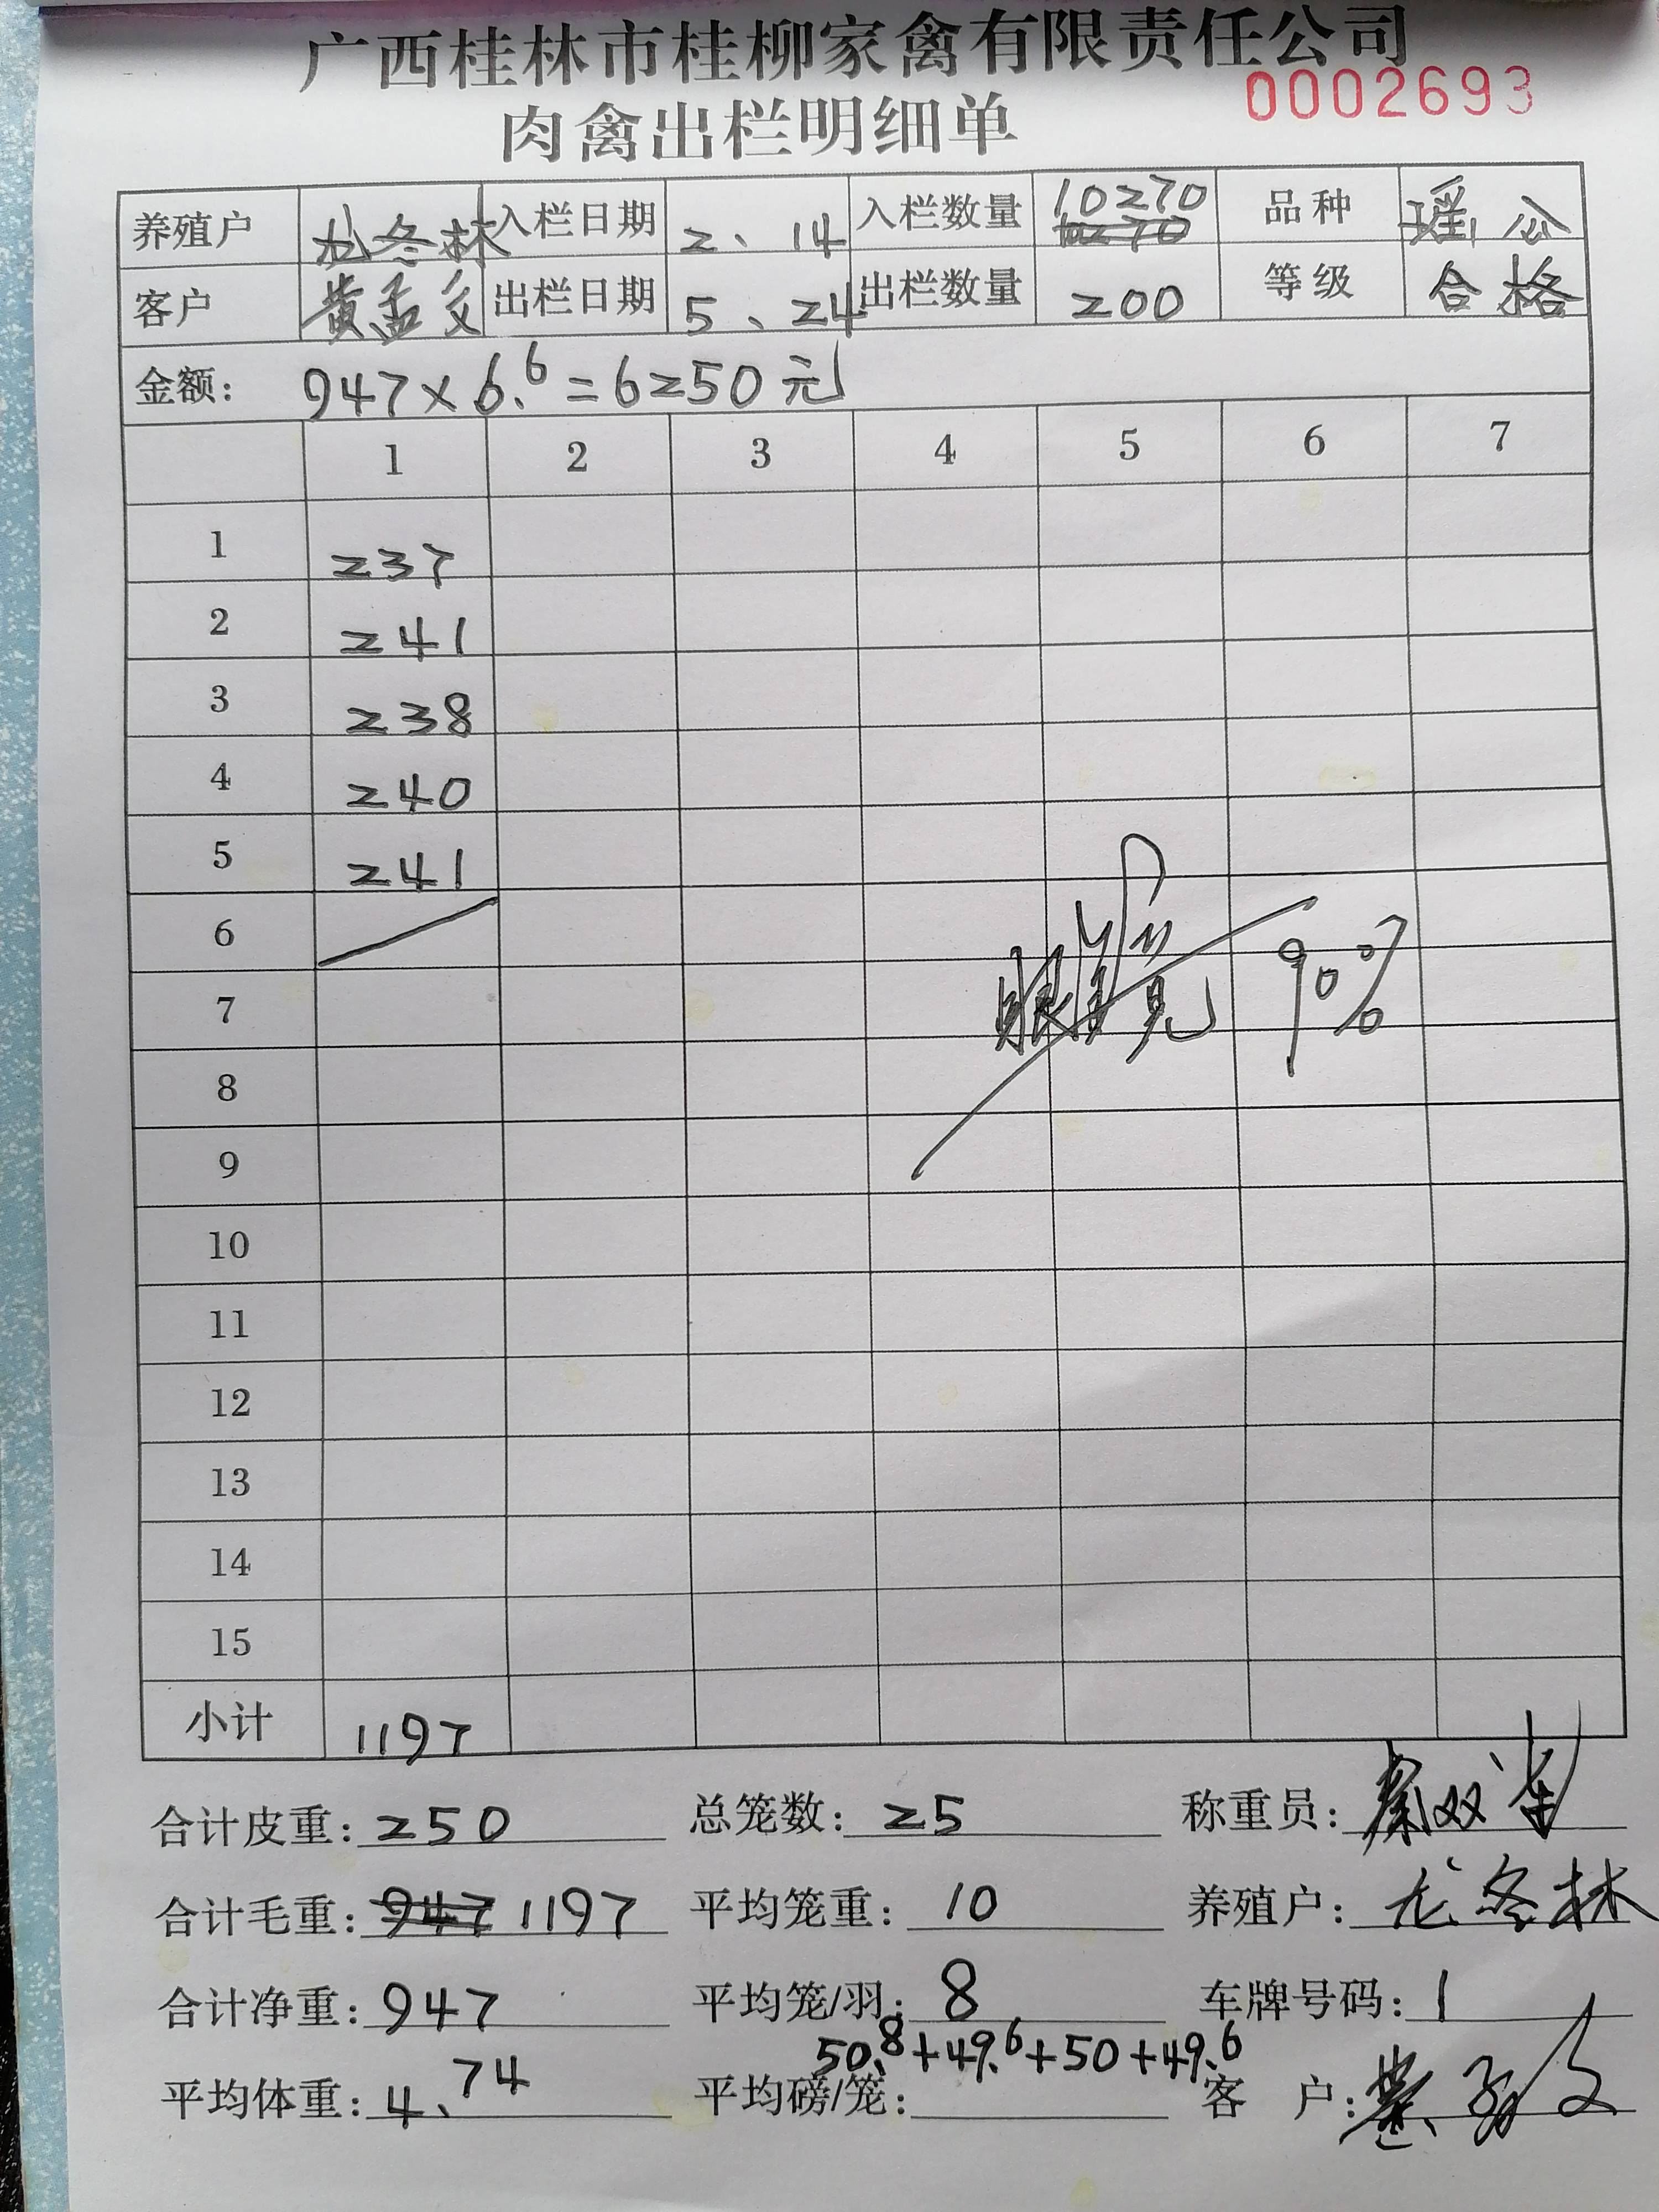 广西桂林市桂柳家禽有限责任公司
肉禽出栏明细单 0002693
养殖户 龙冬林 入栏日期 2、14 入栏数量 10270 品种 瑶公
客户 黄孟 出栏日期 5、24 出栏数量 200 等级 合格
金额: 947×6.6=6250元
1 2 3 4 5 6 7
1 237
2 241
3 238
4 240
5 241
6
7 眼 90%
8
9
10
11
12
13
14
15
小计 1197
合计皮重: 250 总笼数: 25 称重员: 秦双
合计毛重: 947 1197 平均笼重: 10 养殖户: 龙冬林
合计净重: 947 平均笼/羽: 8 车牌号码: 1
50.8+49.6+50+49.6
平均体重: 4.74 平均磅/笼: 客 户: